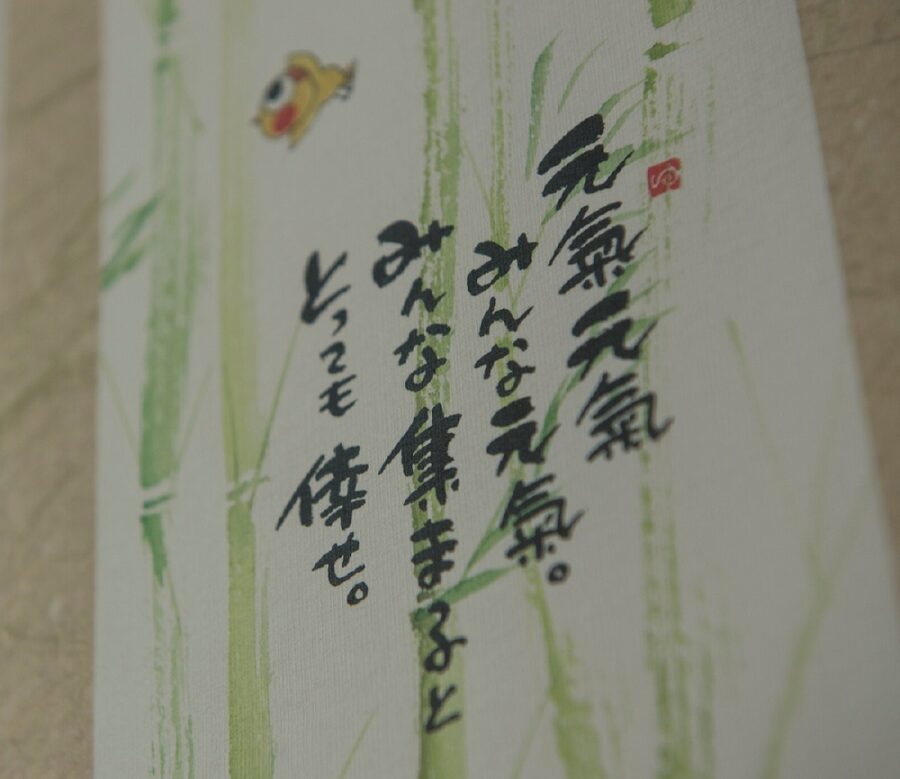 元氣元氣
みんな元氣。
みんな集まると
とっても倖せ。